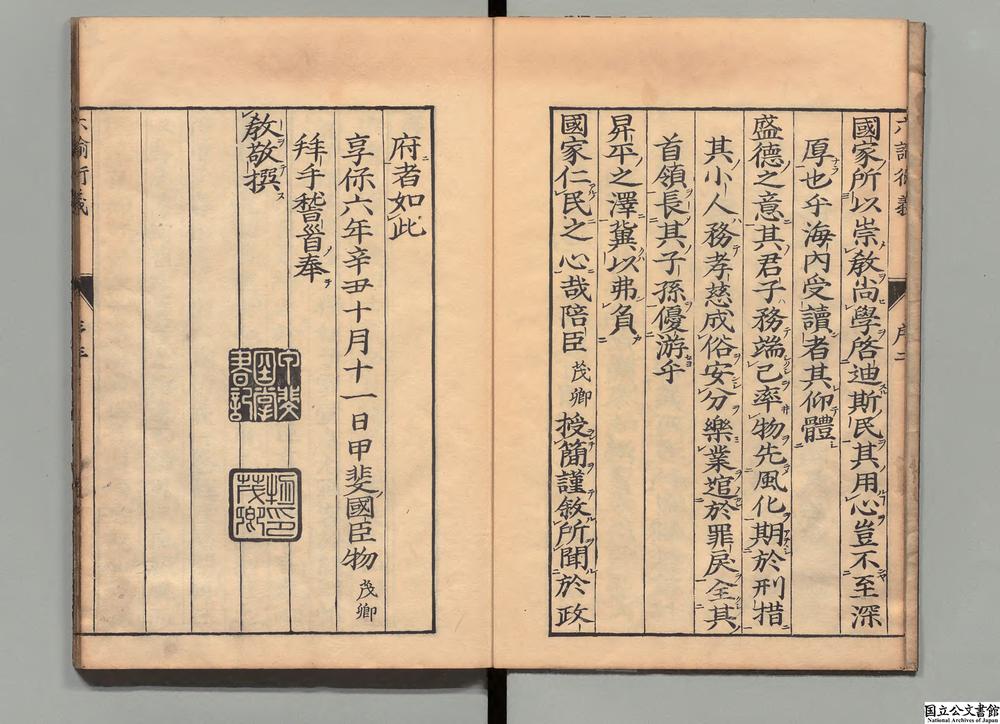 國家所以崇敎尚學啓迪斯民其用心豈不至深
厚也乎海內受讀者其仰體
盛德之意其君子務端己率物先風化期於刑措
其小人務孝慈成俗安分樂業逭於罪戾全其
首領長其子孫優游乎
昇平之澤冀以弗負
國家仁民之心哉陪臣茂卿授簡謹敘所聞於政
府者如此
享保六年辛丑十月十一日甲斐國臣物茂卿
拜手稽首奉
敎敬撰
國立公文書館
National Archives of Japan